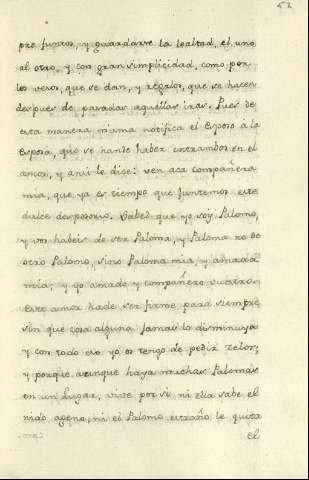 52
pre juntos, y guardarse la lealtad, el uno
al otro, y con gran simplicidad, como por
los veros, que se dan, y regalos, que se hacen
despues de pasadas aquellas iras. Pues de
esta manera misma notifica el Esposo à la
Esposa, que se hande haber entrambos en el
amor, y ansi le dice: ven acà compañera
mia, que ya es tiempo que juntemos este
dulce desposorio. Sabed que yo soy Palomo,
y vos habeis de ser Paloma, y Paloma no de
otro Palomo, sino Paloma mia, y amada
mia; y yo amado y compañero vuestro.
Este amor hade ser firme para siempre
sin que cosa alguna jamas lo disminuya
y con todo eso yo os tengo de pedir zelos;
y porque aunque haya muchas Palomas
en un Lugar, vive por si ni ella sabe el
nido ageno, ni el Palomo extraño le quita
el